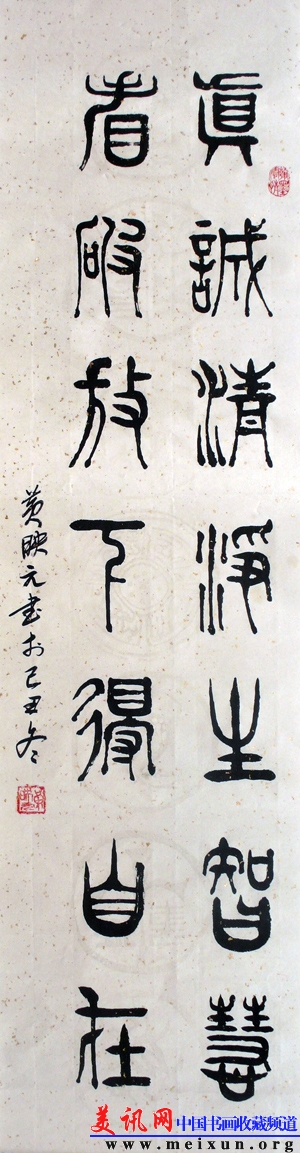 真誠清淨生智慧
看破放下得自在
黄映元书於己丑冬
美讯网 中国书画收藏频道
www.meixun.org